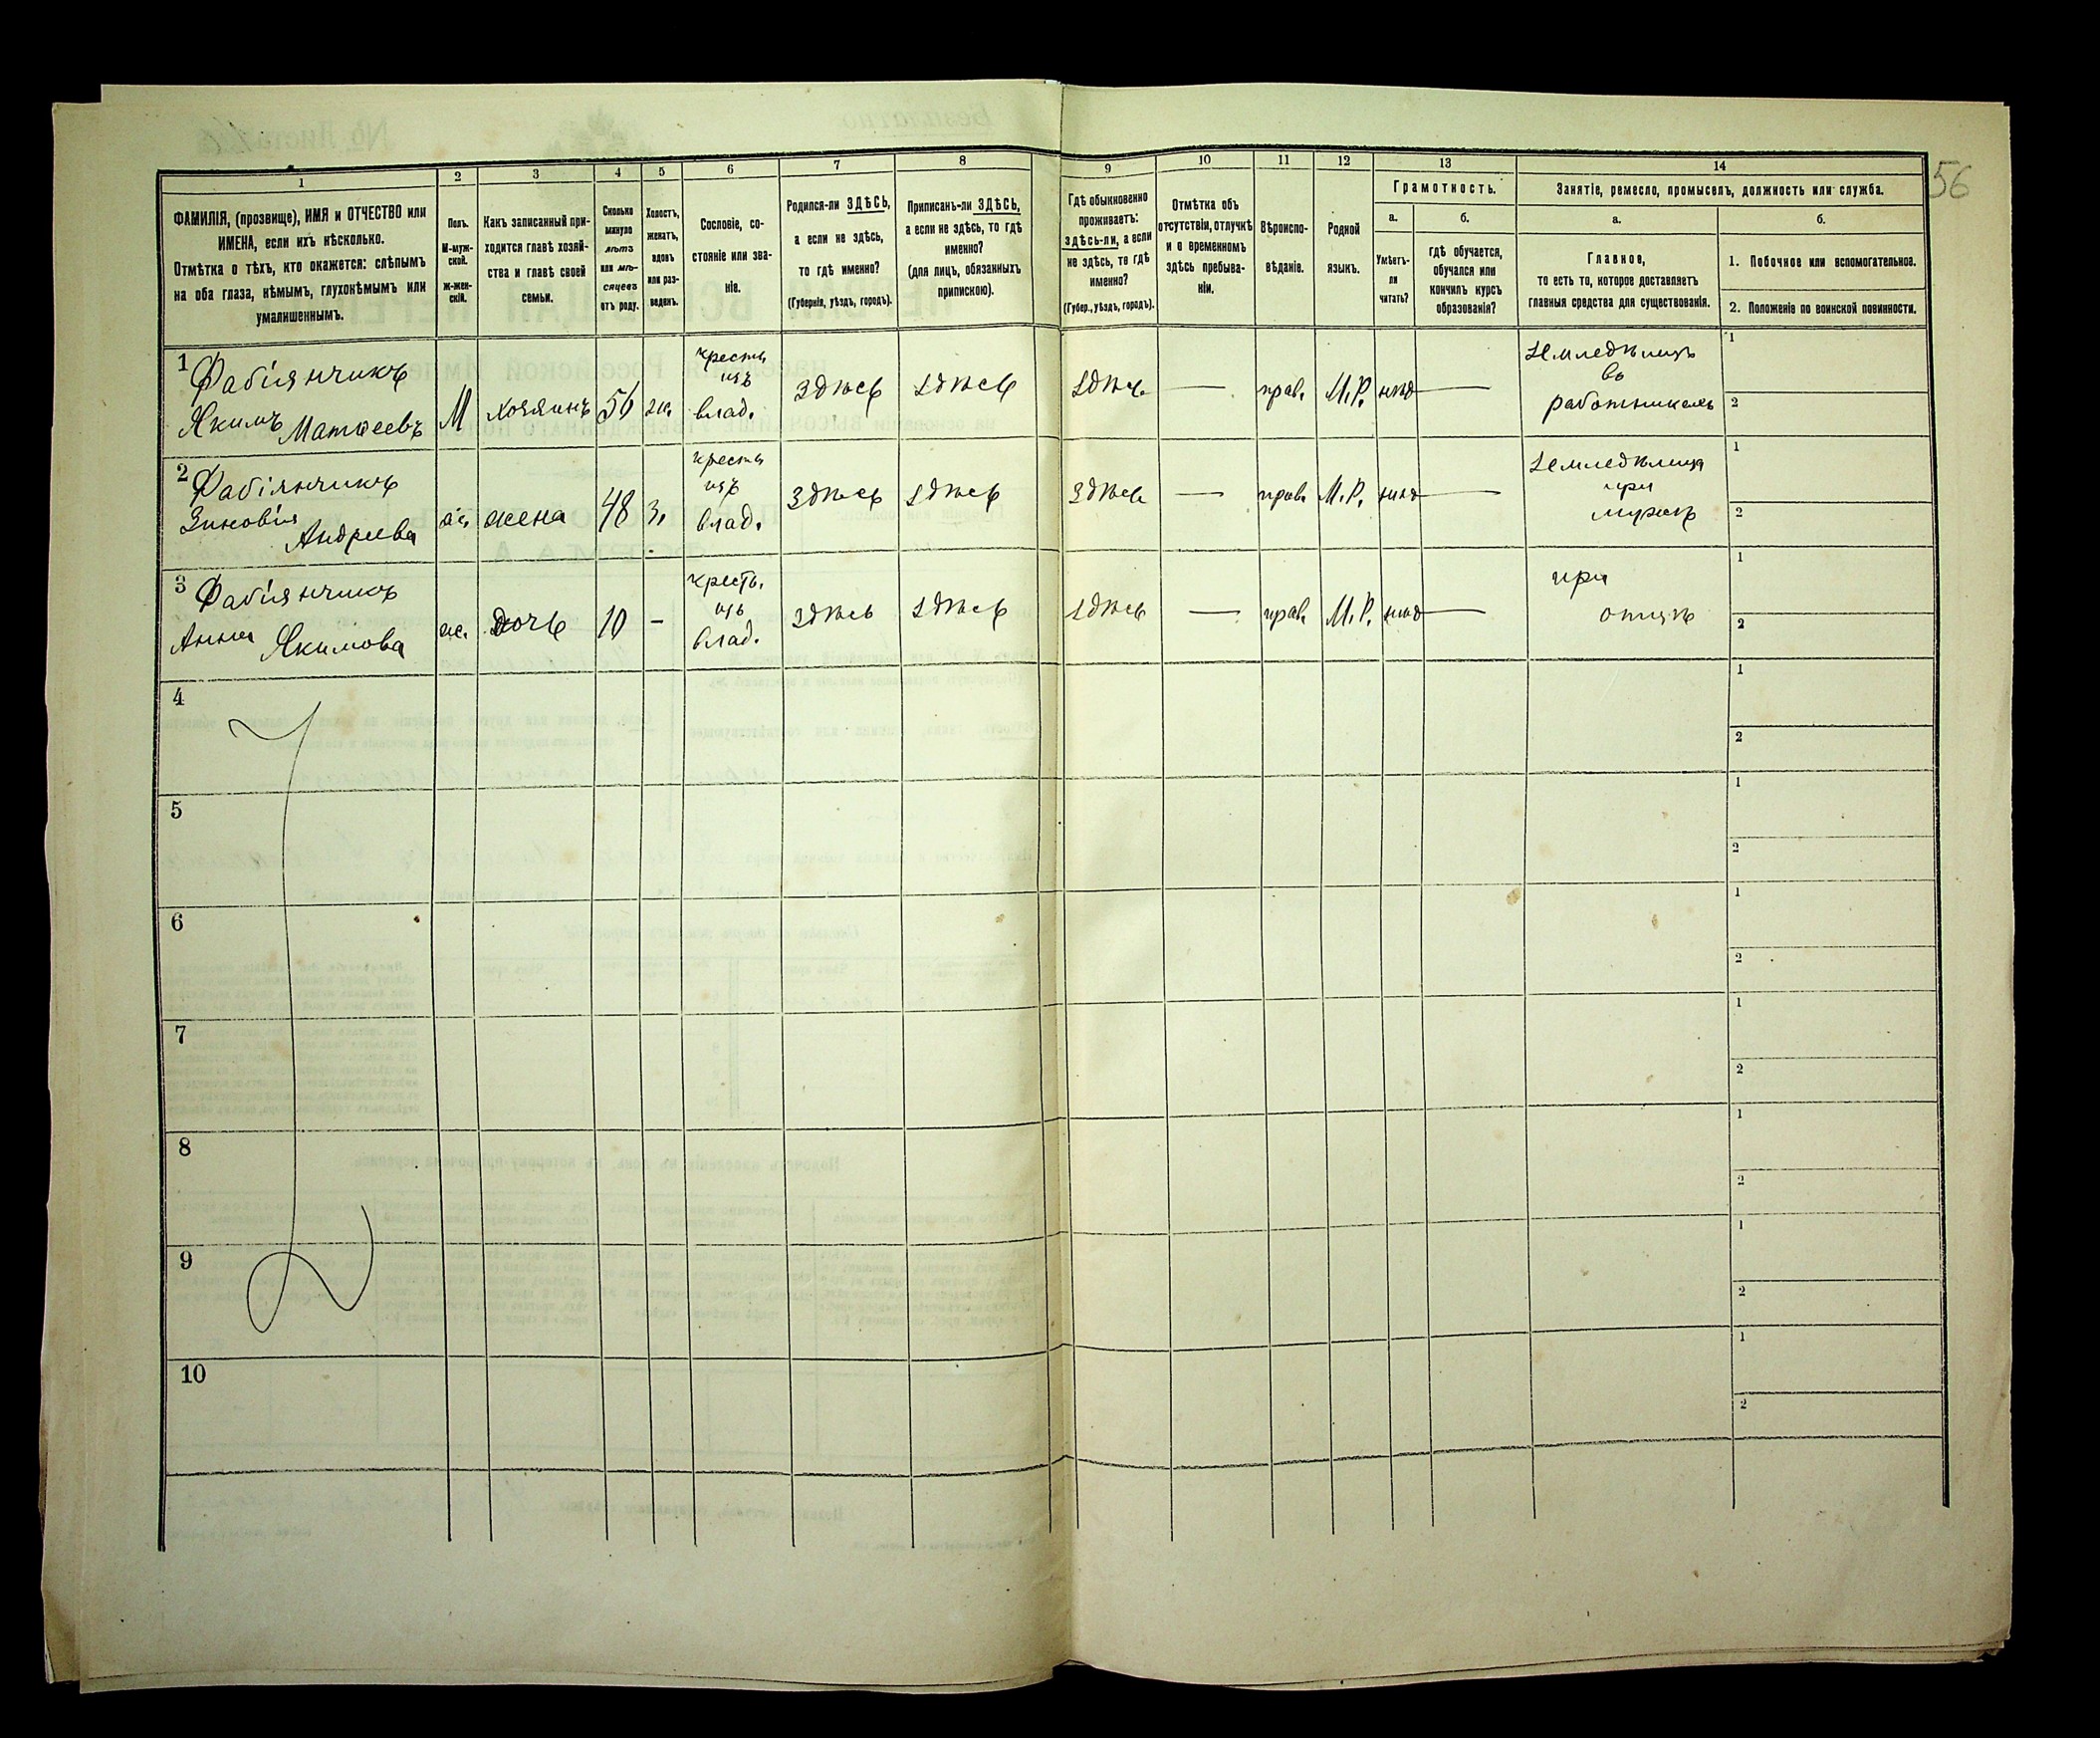 56
1
2
3
4
5
6
7
8
9
10
11
12
13
14
ФАМИЛІЯ, (прозвище), ИМЯ и ОТЧЕСТВО или
ИМЕНА, если ихъ нѣсколько.
Отмѣтка о тѣхъ, кто окажется: слѣпымъ
на оба глаза, нѣмымъ, глухонѣмымъ или
умалишеннымъ.
Полъ.
М-муж-
ской.
Ж-жен-
скій.
Какъ записанный при-
ходится главѣ хозяй-
ства и главѣ своей
семьи.
Сколько
минуло
лѣтъ
или мѣ-
сяцевъ
отъ роду.
Холостъ,
женатъ,
вдовъ
или раз-
веденъ.
Сословіе, со-
стояніе или зва-
ніе.
Родился-ли ЗДѢСЬ,
а если не здѣсь,
то гдѣ именно?
(Губернія, уѣздъ, городъ).
Приписанъ-ли ЗДѢСЬ,
а если не здѣсь, то гдѣ
именно?
(для лицъ, обязанныхъ
припискою).
Гдѣ обыкновенно
проживаетъ:
здѣсь-ли, а если
не здѣсь, то гдѣ
именно?
(Губер., уѣздъ, городъ).
Отмѣтка объ
отсутствіи, отлучкѣ
и о временномъ
здѣсь пребыва-
ніи.
Вѣроиспо-
вѣданіе.
Родной
языкъ.
Грамотность.
а.
Умѣетъ-
ли
читать?
б.
гдѣ обучается,
обучался или
кончилъ курсъ
образованія?
Занятіе, ремесло, промыселъ, должность или служба.
а.
Главное,
то есть то, которое доставляетъ
главныя средства для существованія.
б.
1. Побочное или вспомогательное.
2. Положеніе по воинской повинности.
1
Фабіянчикъ
Якимъ Матѳеевъ
М
хозяинъ
56
ж.
кресть
изъ
влад.
здѣсь
здѣсь
здѣсь
—
прав.
М.Р.
нѣтъ
—
земледѣлецъ
въ
работникахъ
1
2
2
Фабіянчикъ
Зиновія
Андреева
ж.
жена
48
з.
кресть
изъ
влад.
здѣсь
здѣсь
здѣсь
—
прав.
М.Р.
нѣтъ
—
земледѣлица
при
мужѣ
1
2
3
Фабіянчикъ
Анна Якимова
ж.
дочь
10
-
кресть.
изъ
влад.
здѣсь
здѣсь
здѣсь
—
прав.
М.Р.
нѣтъ
—
при
отцѣ
1
2
4
1
2
5
1
2
6
1
2
7
1
2
8
1
2
9
1
2
10
1
2